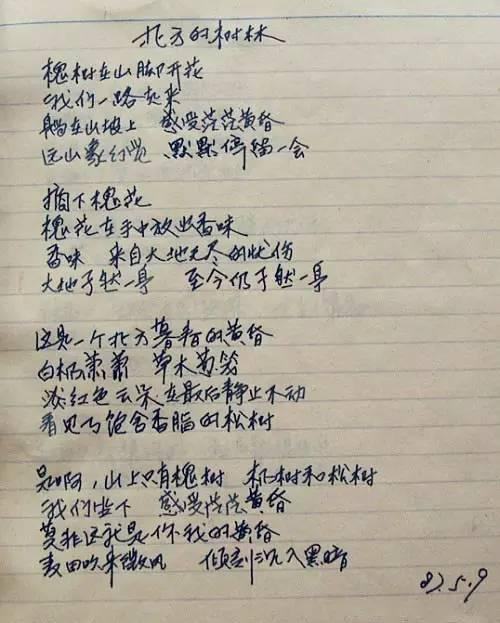 北方的树林
槐树在山脚开花
我们一路走来
躺在山坡上 感受茫茫黄昏
远山象幻觉 默默停留一会
摘下槐花
槐花在手中放出香味
香味 来自大地无尽的忧伤
大地孑然一身 至今仍孑然一身
这是一个北方暮春的黄昏
白杨萧萧 草木葱茏
淡红色云朵在最后静止不动
看见了饱含香脂的松树
是啊，山上只有槐树 杨树和松树
我们坐下 感受茫茫黄昏
莫非这就是你我的黄昏
麦田吹来微风 倾刻沉入黑暗
87.5.9